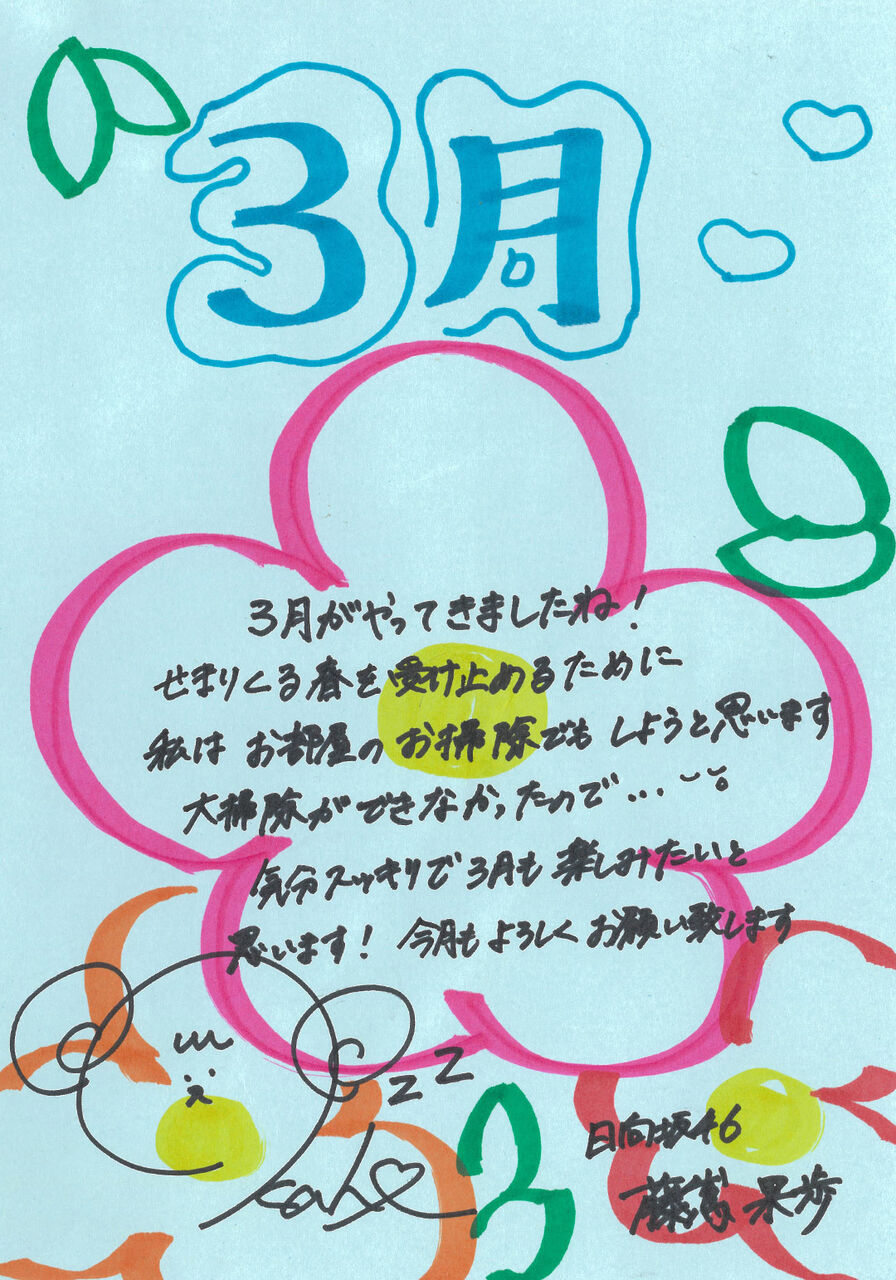 3月
3月がやってきましたね！
せまりくる春を受け止めるために
私は お部屋の お掃除でも しようと思います
大掃除ができなかったので…
気分スッキリで 3月も 楽しみたいと
思います！ 今月も よろしく お願い致します
zz
Kaho
日向坂46
藤嶌 果歩